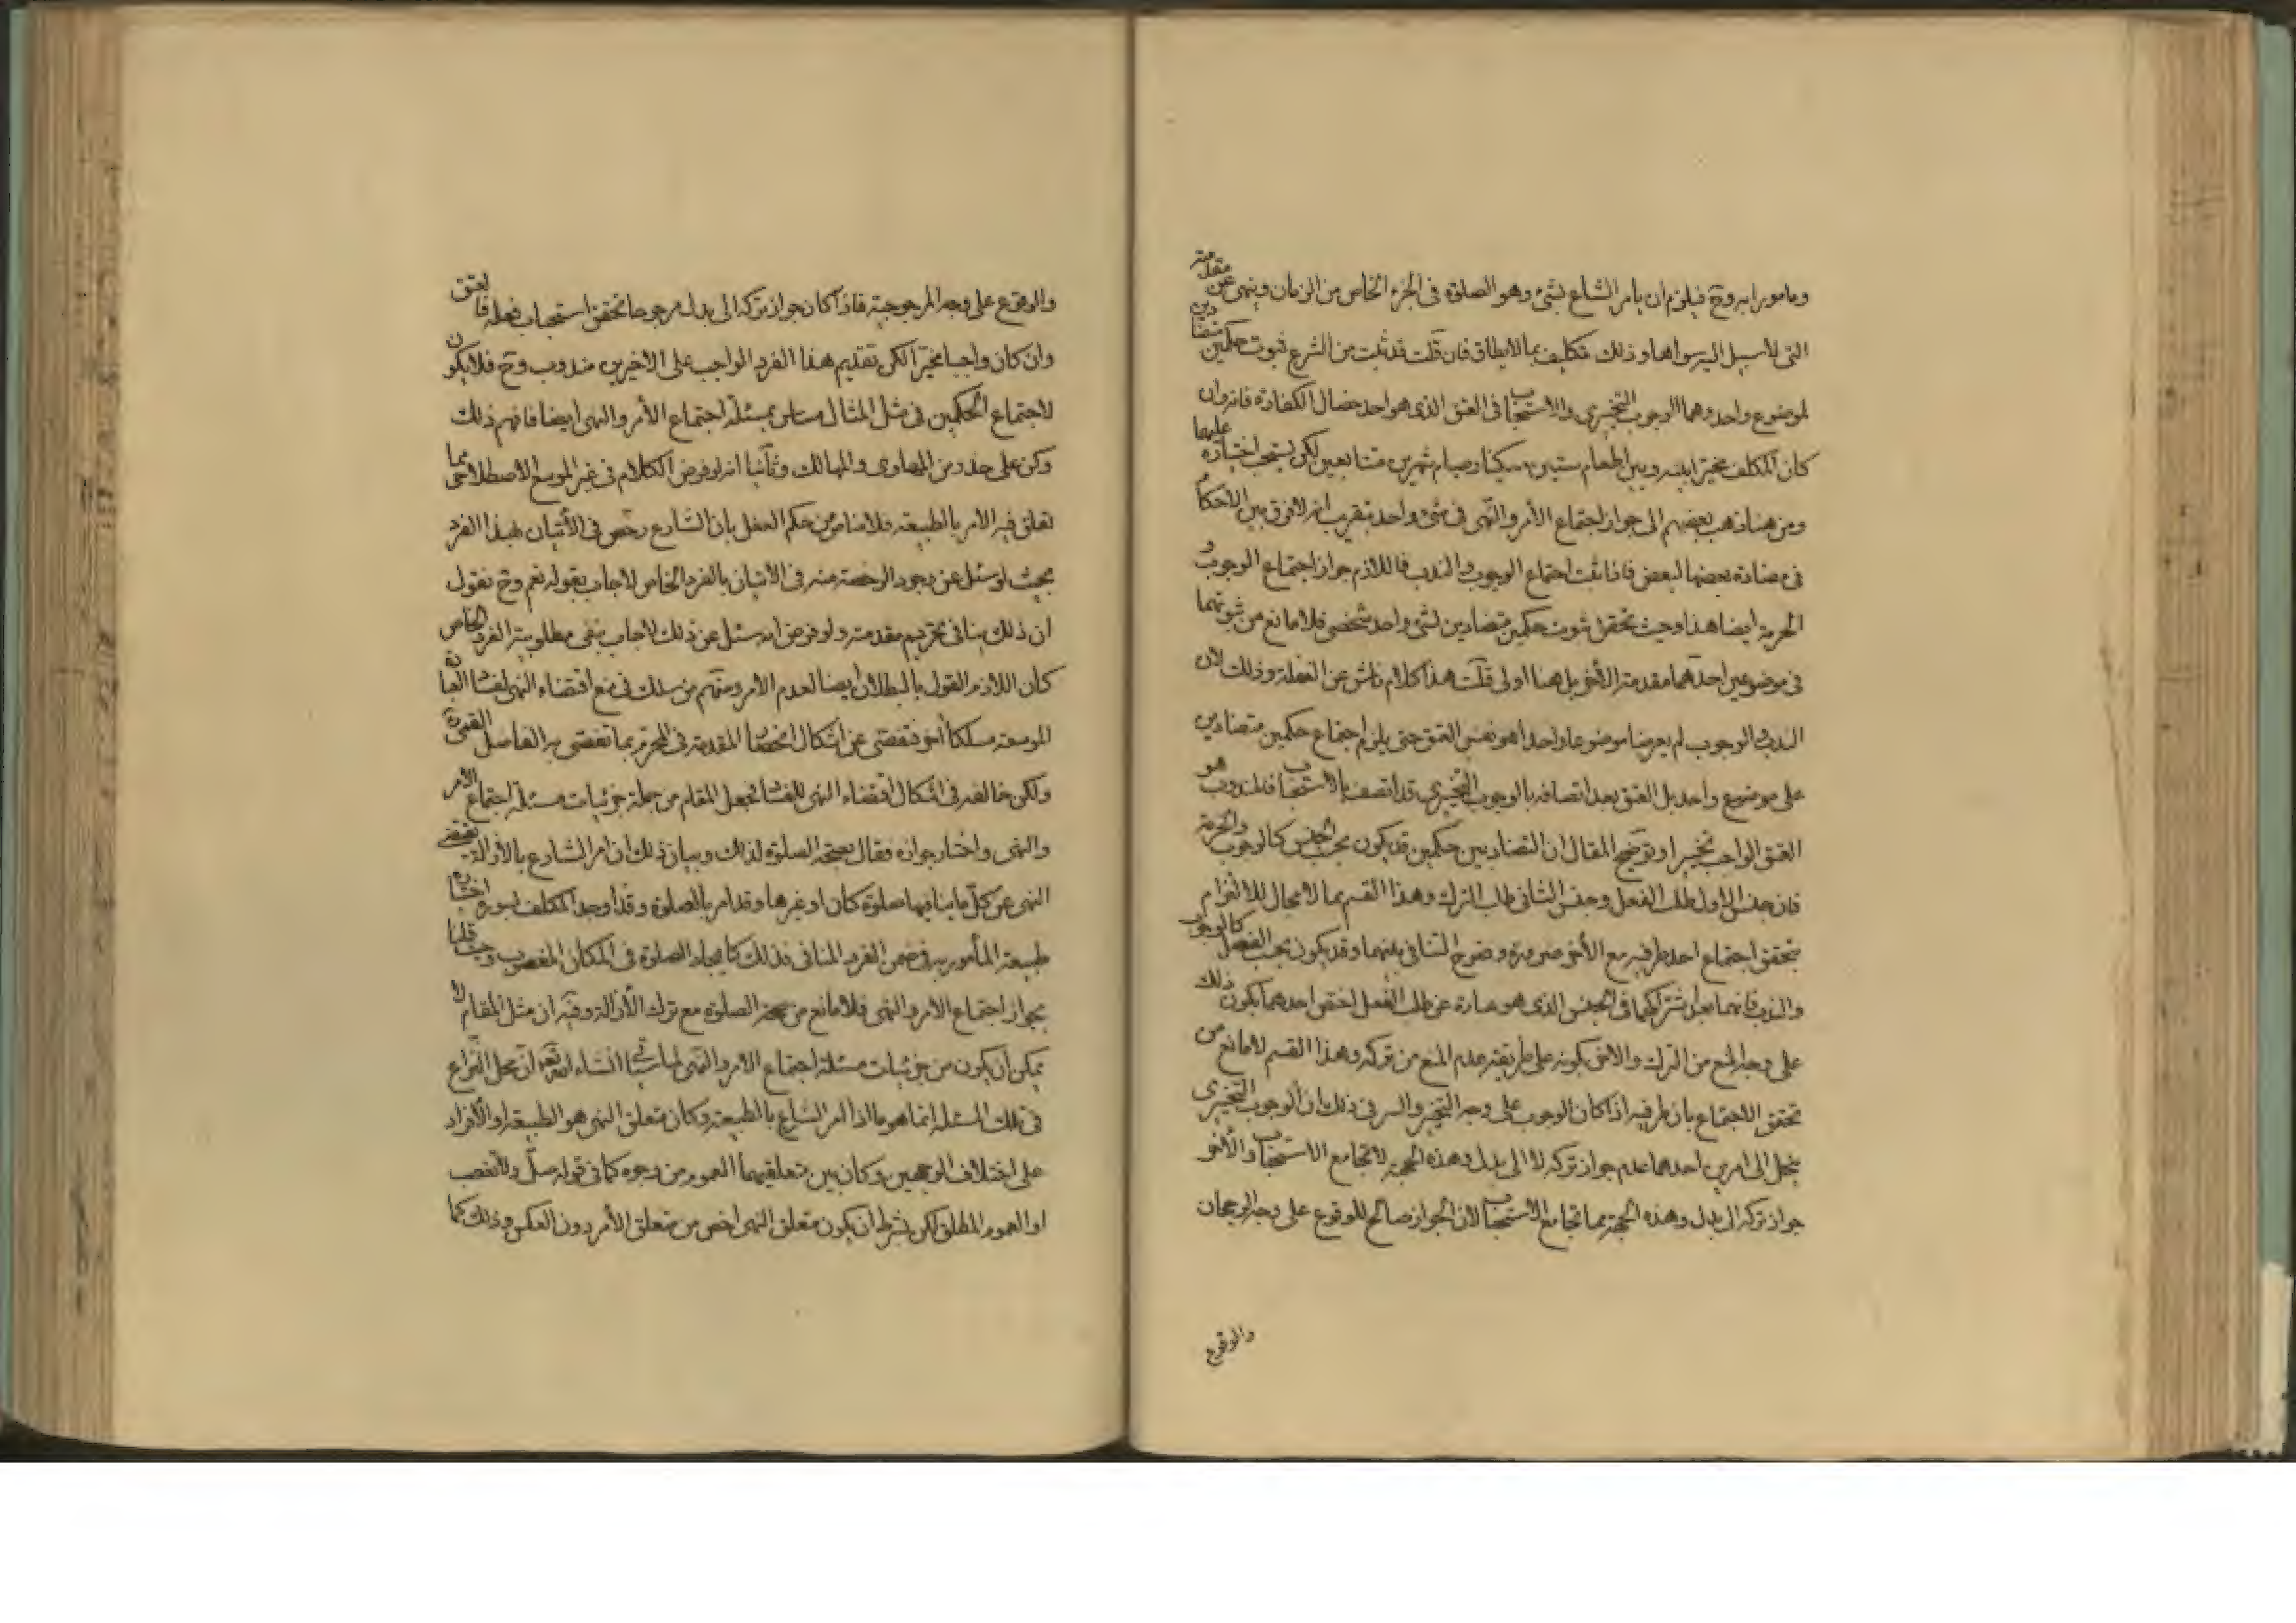 ومامورا به وح فيلزم ان يأمر الشارع بشئ وهو الصلوة فى الجزء الخاص من الزمان وينهى عن مقدمته
التى لا سبيل اليه سواها وذلك تكليف بما لا يطاق فان قلت قد ثبت من الشرع ثبوت حكمين متضادين
لموضوع واحد وهما الوجوب التخييرى والاستحباب فى العتق الذى هو احد خصال الكفارة فانه وان
كان المكلف مخيرا بينه وبين اطعام ستين مسكينا وصيام شهرين متتابعين لكن يستحب اختياره عليهما
ومن هنا ذهب بعضهم الى جواز اجتماع الأمر والنهى فى شئ واحد بتقريب انه لا فرق بين الأحكام
فى مضادة بعضها لبعض فاذا ثبت اجتماع الوجوب والندب فاللازم جواز اجتماع الوجوب و
الحرمة ايضا هذا وحيث تحقق ثبوت حكمين متضادين لشئ واحد شخصى فلا مانع من ثبوتهما
فى موضوعين احدهما مقدمة الأخر بل هنا اولى قلت هذا كلام ناش عن الغفلة وذلك لان
الندب والوجوب لم يعرضا موضوعا واحدا هو نفس العتق حتى يلزم اجتماع حكمين متضادين
على موضوع واحد بل العتق بعد اتصافه بالوجوب التخييرى قد اتصف بالاستحباب فالمندوب هو
العتق الواجب تخييرا وتوضيح المقال ان التضاد بين حكمين قد يكون بحسب الجنس كالوجوب والحرمة
فان جنس الاول طلب الفعل وجنس الثانى طلب الترك وهذا القسم مما لا مجال للالتزام
بتحقق اجتماع احد طرفيه مع الأخر ضرورة وضوح التنافى بينهما وقد يكون بحسب الفصل كالوجوب
والندب فانهما بعد اشتراكهما فى الجنس الذى هو عبارة عن طلب الفعل اختص احدهما بكون ذلك
على وجه المنع من الترك والاخر بكونه على طريقة عدم المنع من تركه وهذا القسم لا مانع من
تحقق الاجتماع بين طرفيه اذا كان الوجوب على وجه التخيير والسر فى ذلك ان الوجوب التخييرى
ينحل الى امرين احدهما عدم جواز تركه لا الى بدل وهذه الجهة لا تجامع الاستحباب والأخر
جواز تركه الى بدل وهذه الجهة مما تجامع الاستحباب لان الجواز صالح للوقوع على وجه الرجحان
والوقوع
والوقوع على وجه المرجوحية فاذا كان جواز تركه الى بدل مرجوحا تحقق استحباب فعله فالعتق
وان كان واجبا مخيرا لكن تقديم هذا الفرد الواجب على الاخيرين مندوب وح فلا يكون
لاجتماع الحكمين فى مثل المثال مساس بمسئلة اجتماع الأمر والنهى ايضا فافهم ذلك
وكن على حذر من المهاوى والمهالك وثانيا انه لو فرض الكلام فى غير الموسع الاصطلاحى مما
تعلق فيه الامر بالطبيعة فلا مناص من حكم العقل بان الشارع رخص فى الأتيان بهذا الفرد
بحيث لو سئل عن وجود الرخصة منه فى الاتيان بالفرد الخاص لاجاب بقوله نعم وح نقول
ان ذلك ينافى تحريم مقدمته ولو فرض انه سئل عن ذلك لاجاب بنفى مطلوبية الفرد الخاص
كان اللازم القول بالبطلان ايضا لعدم الامر ومنهم من سلك فى منع اقتضاء النهى لفساد العبادة
الموسعة مسلكا اخر فتفصى عن اشكال المقدمة فى المحرمة بما تفصى به الفاضل القمى ره
ولكن خالفه فى اشكال اقتضاء النهى للفساد فجعل المقام من جملة جزئيات مسئلة اجتماع الأمر
والنهى واختار جوازه فقال بصحة الصلوة لذلك وبيان ذلك ان امر الشارع بالأزالة يقتضى
النهى عن كل ما ينافيها صلوة كان او غيرها وقد امر بالصلوة وقد اوجد المكلف بسوء اختياره
طبيعة المأمور به فى ضمن الفرد المنافى فذلك كايجاد الصلوة فى المكان المغصوب وحيث قلنا
بجواز اجتماع الامر والنهى فلا مانع من صحة الصلوة مع ترك الأزالة وفيه ان مثل المقام لا
يمكن ان يكون من جزئيات مسئلة اجتماع الامر والنهى لما يأتى انشاء الله تعالى ان محل النزاع
فى تلك المسئلة انما هو ما اذا امر الشارع بالطبيعة وكان متعلق النهى هو الطبيعة او الأفراد
على اختلاف الوجهين وكان بين متعلقيهما العموم من وجوه كما فى قوله صل ولا تغصب
او العموم المطلق لكن بشرط ان يكون متعلق النهى اخص من متعلق الأمر دون العكس وذلك كما